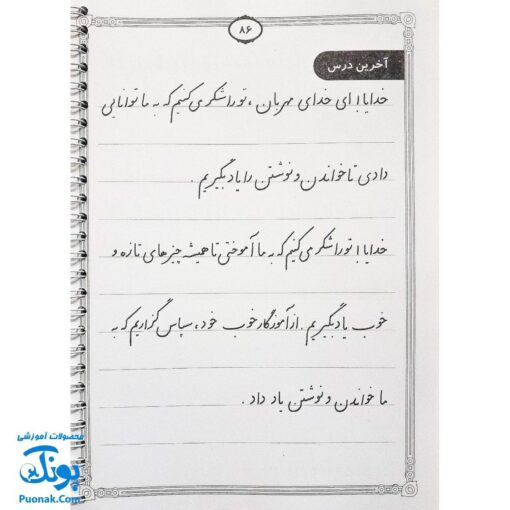 ۸۶
آخرین درس
خدایا! ای خدای مهربان، تو را شکر می‌کنیم که به ما توانایی
دادی تا خواندن و نوشتن را یاد بگیریم.
خدایا! تو را شکر می‌کنیم که به ما آموختی تا همیشه چیزهای تازه و
خوب یاد بگیریم. از آموزگار خوب خود، سپاس گزاریم که به
ما خواندن و نوشتن یاد داد.
محصولات آموزشی
پونک
Puonak.Com